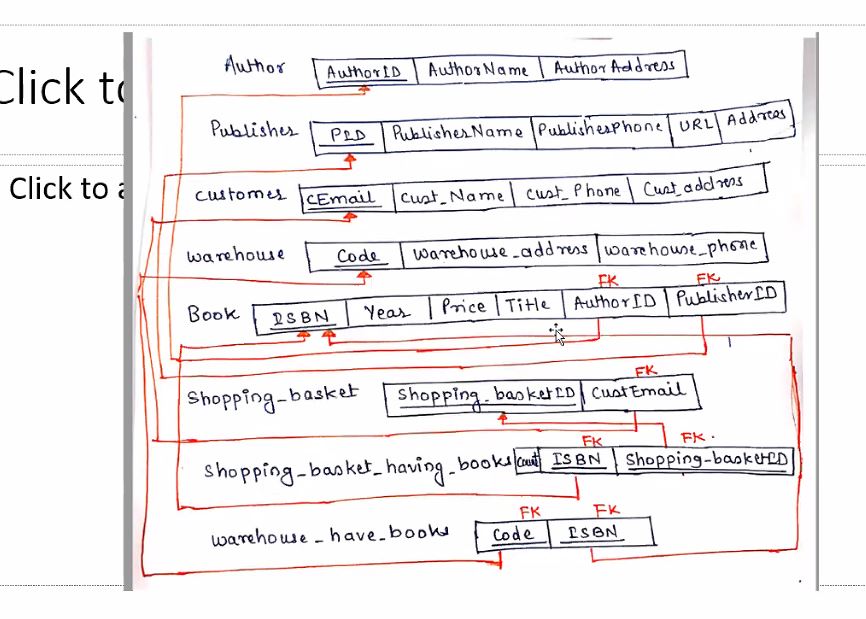 Click to
Author AuthorID AuthorName AuthorAddress
Publisher PID PublisherName PublisherPhone URL Address
Click to a
Customer CEmail Cust_Name Cust_Phone Cust_address
Warehouse Code Warehouse_address Warehouse_phone
FK FK
Book ISBN Year Price Title AuthorID PublisherID
FK
Shopping_basket Shopping_basketID CustEmail
FK FK
Shopping_basket_having_books Count ISBN Shopping-basketID
FK FK
Warehouse_have_books Code ISBN